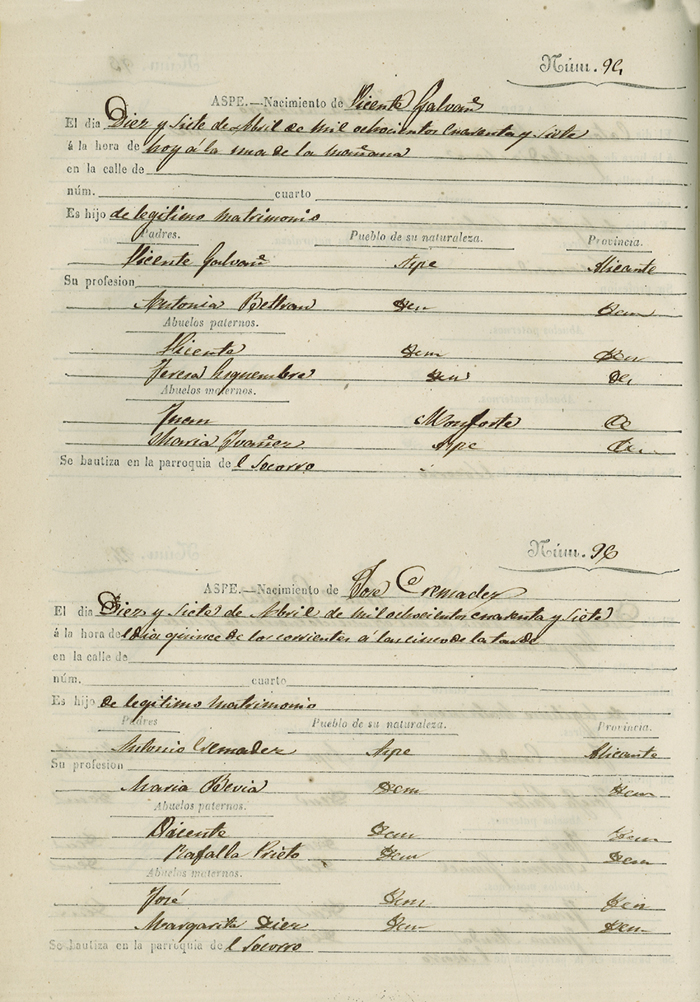 Núm. 94
ASPE.—Nacimiento de Vicente Galvañ
El dia Diez y Siete de Abril de mil ochocientos cuarenta y siete
á la hora de hoy á la una de la mañana
en la calle de
núm. cuarto
Es hijo de legitimo matrimonio
Padres. Pueblo de su naturaleza. Provincia.
Vicente Galvañ Aspe Alicante
Su profesion
Antonia Beltran Idem Idem
Abuelos paternos.
Vicente Idem Idem
Teresa Idem
Abuelos maternos.
Juan Monforte
Maria Ivañez Aspe
Se bautiza en la parroquia de l Socorro
Núm. 96
ASPE.—Nacimiento de José Cremadez
El dia Diez y Siete de Abril de mil ochocientos cuarenta y siete
á la hora de l dia quince de los corrientes á las cinco de la tarde
en la calle de
núm. cuarto
Es hijo de legitimo matrimonio
Padres Pueblo de su naturaleza. Provincia.
Antonio Cremadez Aspe Alicante
Su profesion
Maria Bevia Idem Idem
Abuelos paternos.
Vicente Idem Idem
Rafalla Prieto Idem Idem
Abuelos maternos.
José Idem Idem
Margarita Diez Idem Idem
Se bautiza en la parroquia de l Socorro